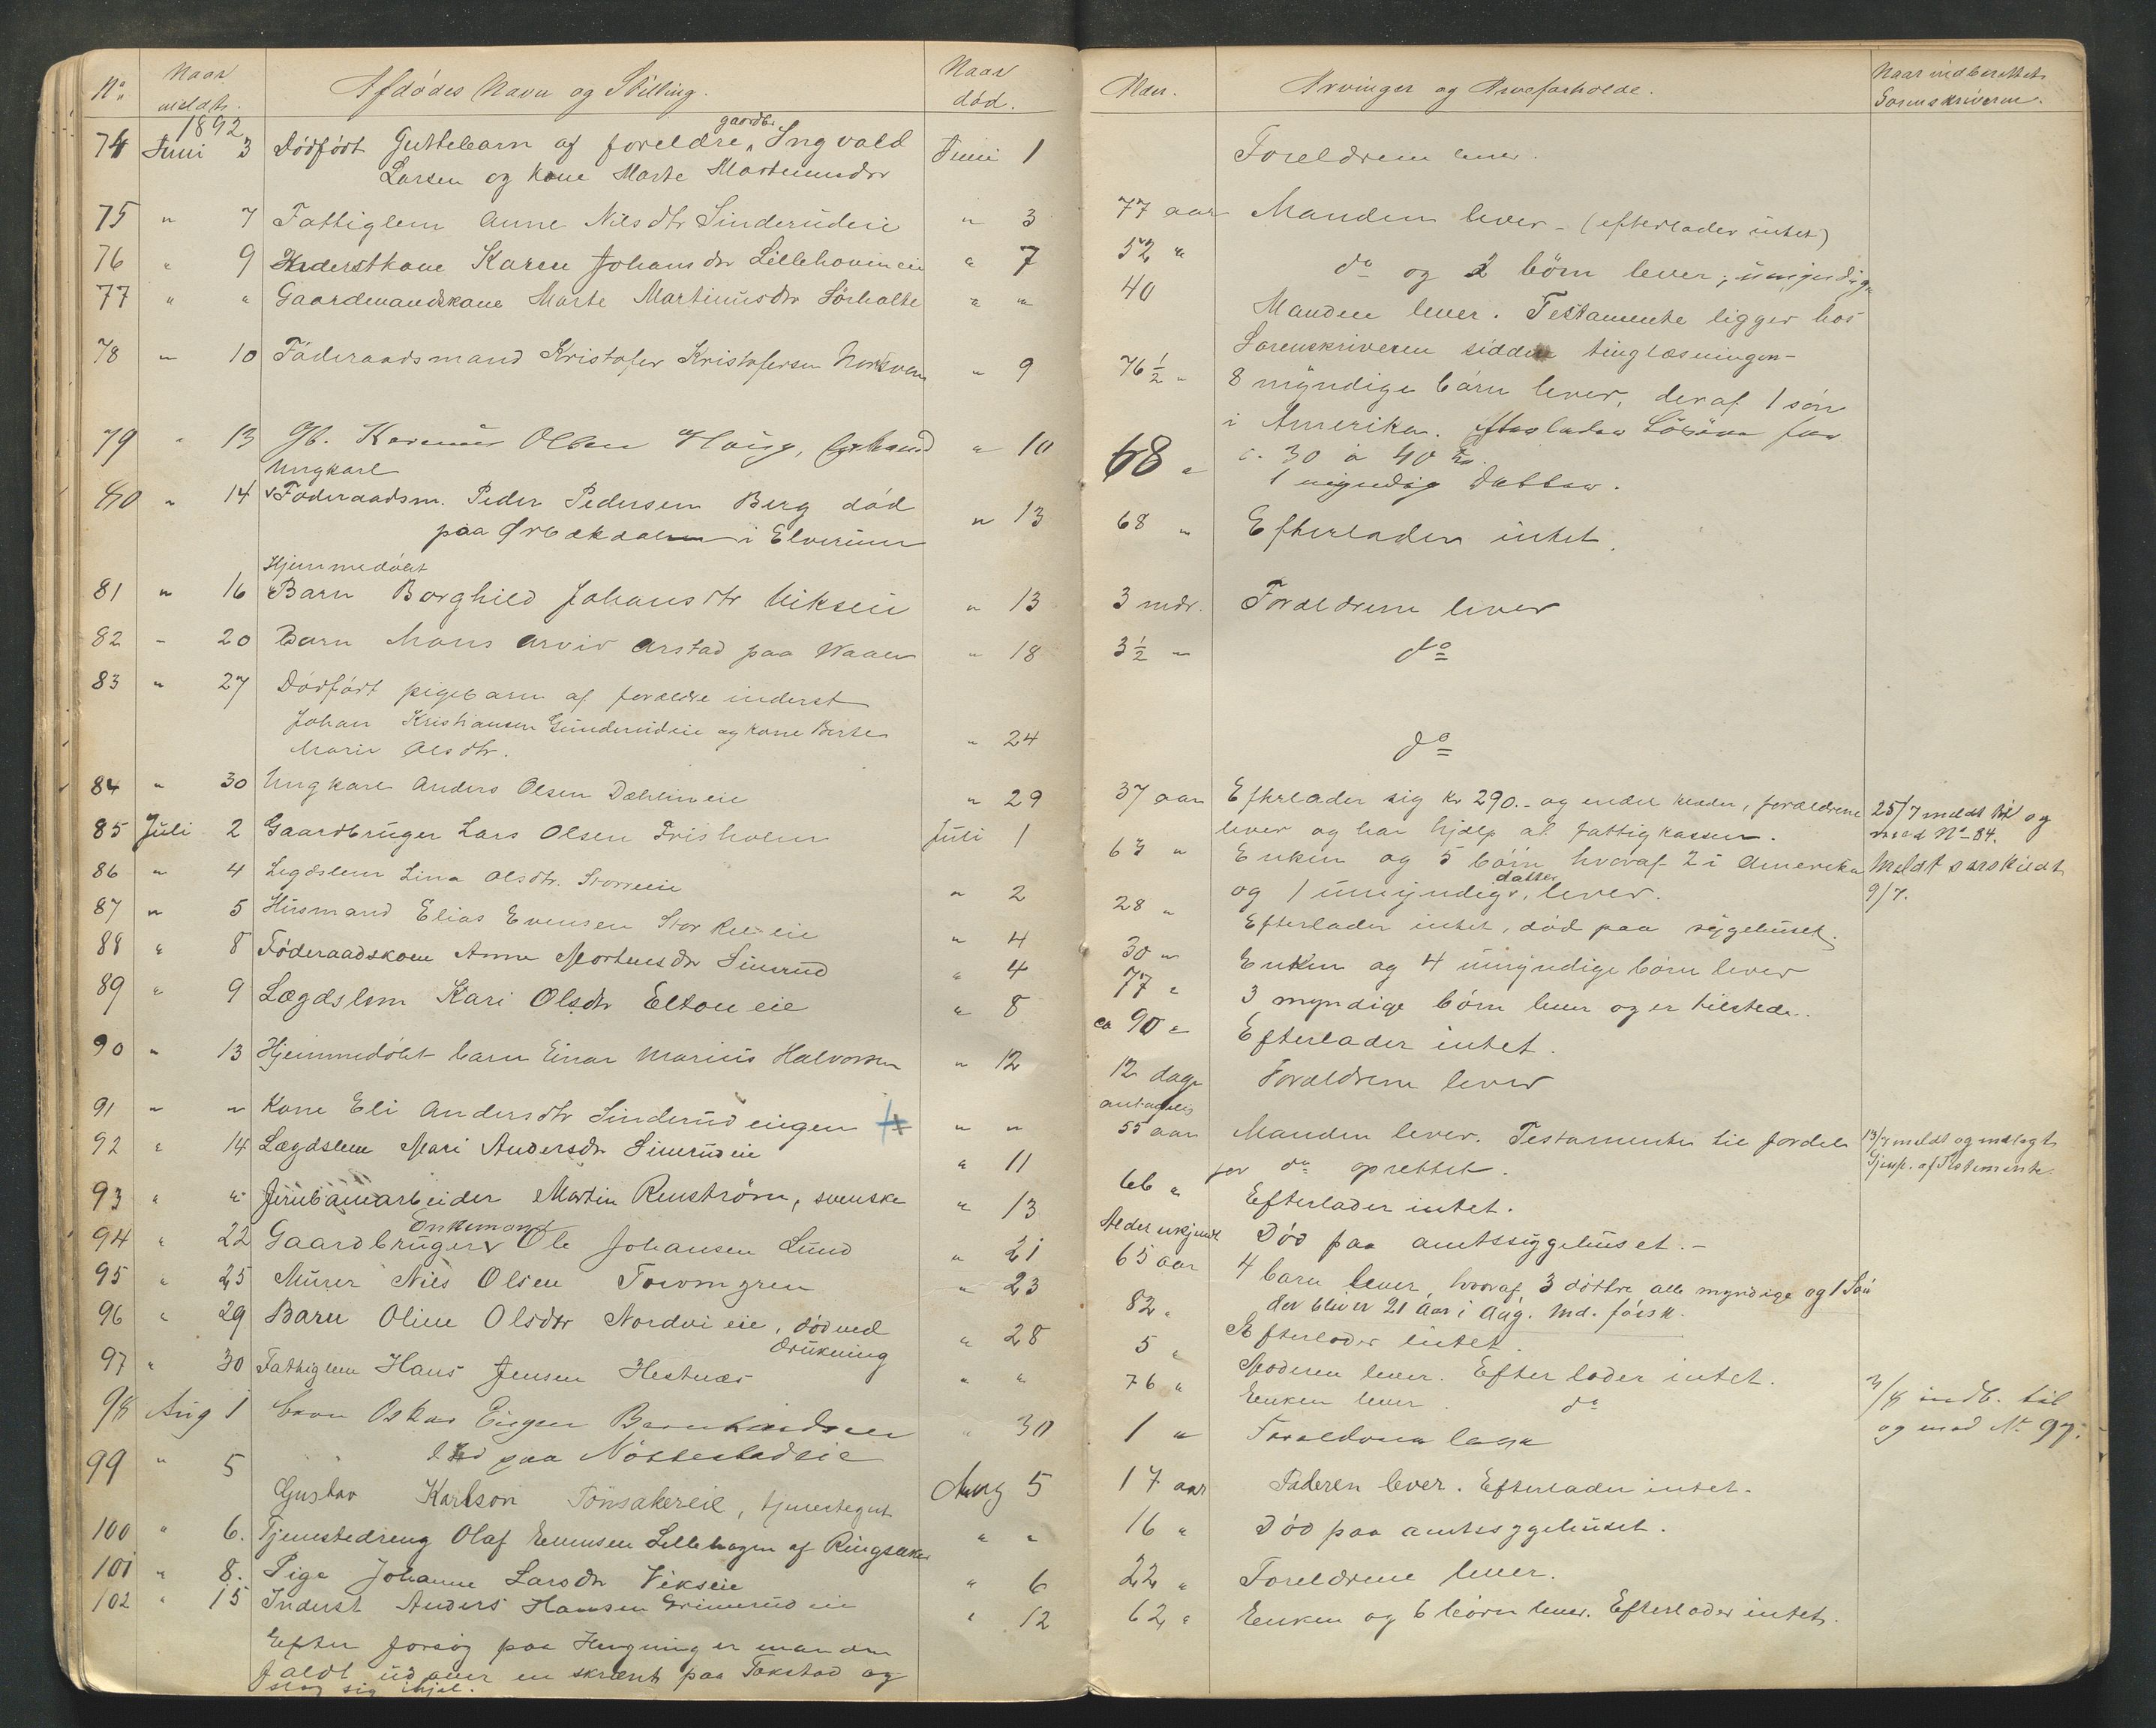 No. Naar meldt. Afdødes Navn og Stilling. Naar død.
1892
74 Juni 3 Dødfødt Guttebarn af foreldre gaardbr. Ingvald Juni 1
Larsen og kone Marte Martinusdtr
75 " 7 Fattiglem Anne Nilsdtr Sinderudeie " 3
76 " 9 Inderstkone Karen Johansdtr Lillehovineie " 7
77 " " Gaardmandskone Marte Martinusdtr Sörholte " "
78 " 10 Föderaadsmand Kristofer Kristofersen " 9
79 " 13 Gb. Olsen Haug, " 10
Ungkarl
80 " 14 Føderaadsm. Peder Pedersen Berg død
paa i Elverum " 13
Hjemmedøbt
81 " 16 Barn Borghild Johansdtr Vikseie " 13
82 " 20 Barn Hans Arvid Arstad paa Waaler " 18
83 " 27 Dødfødt pigebarn af forældre inderst
Johan Kristiansen Gunderudeie og kone Berte
Marie Olsdtr. " 24
84 " 30 Ungkarl Anders Olsen Dæhlineie " 29
85 Juli 2 Gaardbruger Lars Olsen Frisholm Juli 1
86 " 4 Legdslem Lina Olsdtr. " 2
87 " 5 Husmand Elias Evensen " 4
88 " 8 Föderaadskone Anne Mortensdtr Simrud " 4
89 " 9 Lægdslem Kari Olsdtr Eltoneie " 8
90 " 13 Hjemmedøbt barn Einar Marius Halvorsen " 12
91 " " Kone Eli Andersdtr Sinderudeigen " "
92 " 14 Lægdslem Mari Andersdtr Simrudeie " 11
93 " " Jernbanearbeider Martin Renström, svenske " 13
Enkemand
94 " 22 Gaardbruger Ole Johansen Lund " 21
95 " 25 Murer Nils Olsen " 23
96 " 29 Barn Oline Olsdtr Nordvieie, død ved
drukning " 28
97 " 30 Fattiglem Hans Jensen Hestnæs " "
98 Aug 1 barn Oskar Eugen " 30
paa Nöttestadeie
99 " 5 Gustav Karlson Tönsakereie, tjenestegut Aug 5
100 " 6. Tjenestedreng Olaf Evensen Lillehagen af Ringsaker " "
101 " 8. Pige Johanne Larsdtr Vikseie " 6
102 " 15 Inderst Anders Hansen Grimerudeie " 12
Efter forsøg paa Hængning er manden
faldt ud over en skrænt paa Tokstad og
slog sig ihjel.
Alder. Arvinger og Arveforholde. Naar indberettet Sorenskriveren.
Foreldrene lever.
77 aar Manden lever - (efterlader intet)
52 " do og 2 börn lever, umyndige
40 Manden lever. Testamente ligger hos
Sorenskriveren siden tinglæsningen-
76 1/2 " 8 myndige börn lever, deraf 1 sön
i Amerika. Efterlader Lösöre for
c. 30 à 40 kr.
68 " 1 myndig Datter.
68 " Efterlader intet.
3 mdr. Forældrene lever
3 1/2 " do
do
37 aar Efterlader sig kr 290.- og endel klæder, forældrene 25/7 meldt til og
lever og har hjælp af fattigkassen. med No 84.
63 " Enken og 5 börn hvoraf 2 i Amerika Meldt særskildt
og 1 umyndig datter, lever. 9/7.
28 " Efterlader intet, død paa sygehuset.
30 " Enken og 4 umyndige börn lever
77 " 3 myndige börn lever og er tilstede.
ca 90 " Efterlader intet.
12 dage Forældrene lever
antagelig
55 aar Manden lever. Testamente til fordel 13/7 meldt og indlagt
for do oprettet. Gjenp. af Testamente
66 " Efterlader intet.
Alder ukjendt Död paa amtssygehuset.-
65 aar 4 barn lever, hvoraf 3 døttre alle myndige og 1 Sön
der bliver 21 Aar i Aug. Md. förstk.
82 " Efterlader intet.
5 " Moderen lever. Efterlader intet.
76 " Enken lever. do
indb. til
og med No 97.
1 " Forældrene
17 aar Faderen lever. Efterlader intet.
16 " Död paa amtssygehuset.
22 " Foreldrene lever.
62 " Enken og 6 börn lever. Efterlader intet.